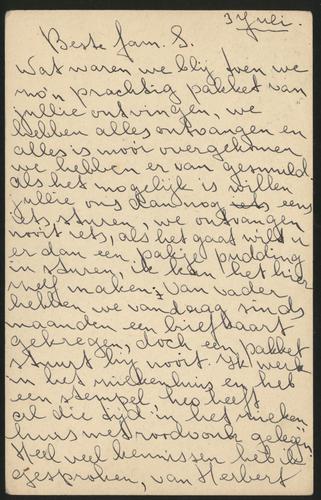 3 Juli.
Beste fam. S.
Wat waren we blij toen we
zo'n prachtig pakket van
jullie ontvingen, we
hebben alles ontvangen en
alles is mooi overgekomen
we hebben er van gesmuld.
als het mogelijk is willen
jullie ons dan nog eens
iets sturen, we ontvangen
nooit iets, als het gaat wilt u
er dan een pakje pudding
in sturen, ik kan het hier
zelf maken. Van vader
hebben we vandaag sinds
maanden een briefkaart
gekregen, doch een pakket
stuurt hij nooit. Ik werk
in het ziekenhuis en heb
een stempel hep heeft
al die tijd in het zieken-
huis met roodvonk gelegen
Heel veel kennissen heb ik
gesproken, van Herbert